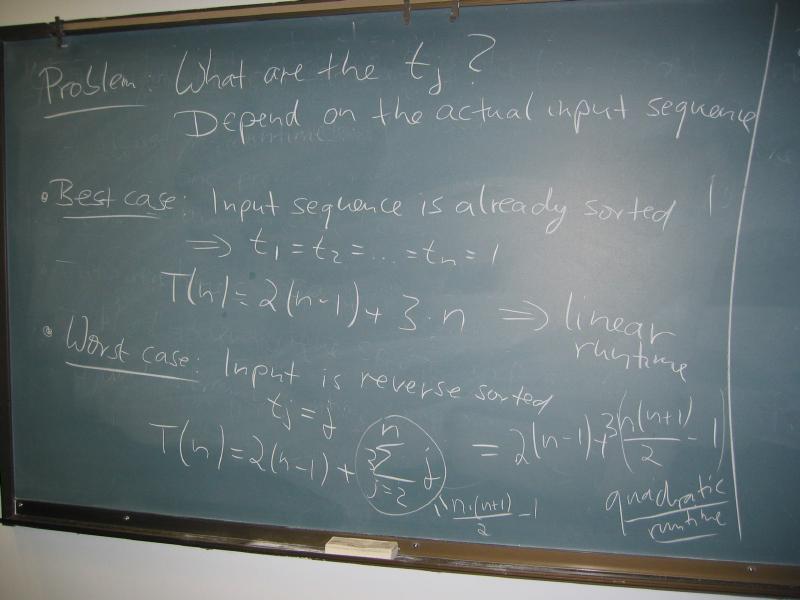 Problem: What are the tj ?
Depend on the actual input sequence
• Best case: Input sequence is already sorted
⇒ t1 = t2 = ... = tn = 1
T(n) = 2(n-1) + 3·n ⇒ linear
runtime
• Worst case: Input is reverse sorted
tj = j
T(n) = 2(n-1) + 3 ∑_{j=2}^{n} j = 2(n-1) + 3(n(n+1)/2 - 1)
n·(n+1)/2 - 1
quadratic
runtime